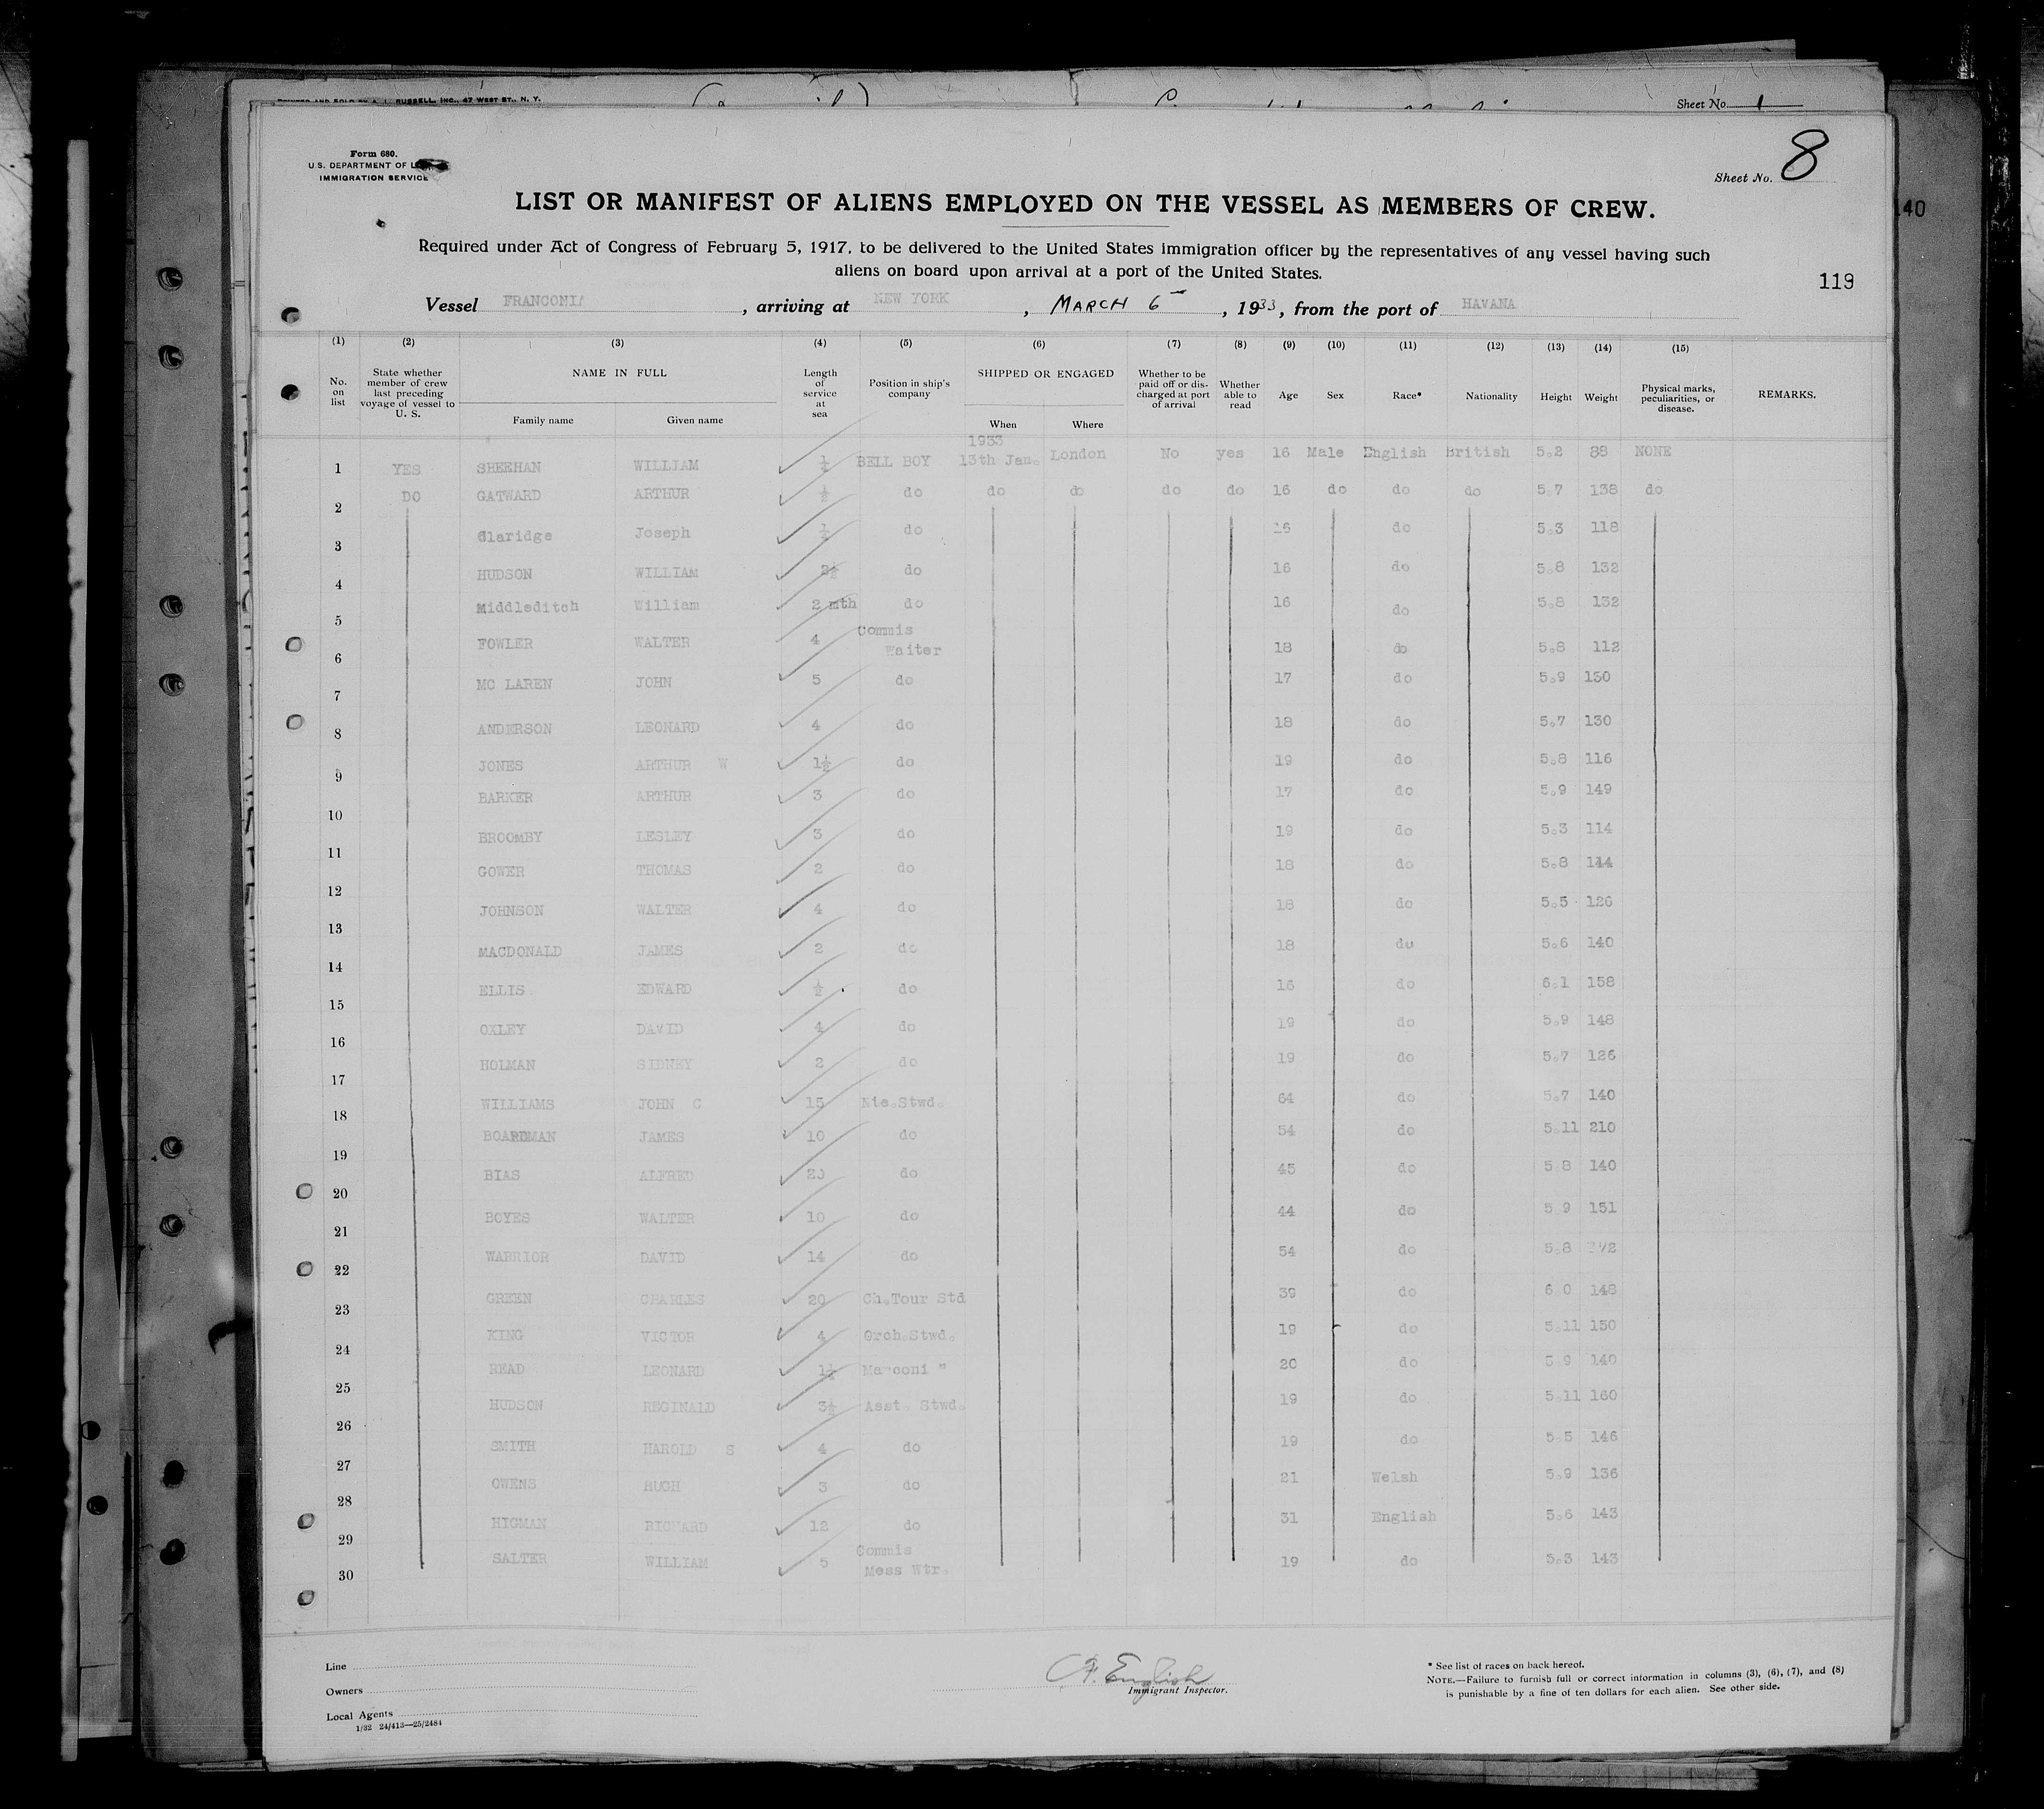 RUSSELL, INC., 47 WEST ST., N. Y.
Sheet No. 1
Form 680.
U.S. DEPARTMENT OF
IMMIGRATION SERVICE
Sheet No. 8
140
LIST OR MANIFEST OF ALIENS EMPLOYED ON THE VESSEL AS MEMBERS OF CREW.
Required under Act of Congress of February 5, 1917, to be delivered to the United States immigration officer by the representatives of any vessel having such
aliens on board upon arrival at a port of the United States.
119
Vessel FRANCONIA, arriving at NEW YORK, MARCH 6, 1933, from the port of HAVANA
(1) (2) (3) (4) (5) (6) (7) (8) (9) (10) (11) (12) (13) (14) (15)
No. on list
State whether member of crew last preceding voyage of vessel to U. S.
NAME IN FULL
Family name Given name
Length of service at sea
Position in ship's company
SHIPPED OR ENGAGED
When Where
Whether to be paid off or discharged at port of arrival
Whether able to read
Age Sex Race* Nationality Height Weight
Physical marks, peculiarities, or disease.
REMARKS.
1933
1 YES SHEEHAN WILLIAM ½ BELL BOY 13th Jan. London No yes 16 Male English British 5.2 88 NONE
2 DO GATWARD ARTHUR ½ do do do do do 16 do do do 5.7 138 do
3 Claridge Joseph do do 5.3 118
4 HUDSON WILLIAM 2½ do 16 do 5.8 132
5 Middleditch William 2 mth do 16 do 5.8 132
6 FOWLER WALTER 4 Commis Waiter 18 do 5.8 112
7 MC LAREN JOHN 5 do 17 do 5.9 130
8 ANDERSON LEONARD 4 do 18 do 5.7 130
9 JONES ARTHUR W 1½ do 19 do 5.8 116
10 BARKER ARTHUR 3 do 17 do 5.9 149
11 BROOMBY LESLEY 3 do 19 do 5.3 114
12 GOWER THOMAS 2 do 18 do 5.8 144
13 JOHNSON WALTER 4 do 18 do 5.5 126
14 MACDONALD JAMES 2 do 18 do 5.6 140
15 ELLIS EDWARD ½ do 16 do 6.1 158
16 OXLEY DAVID 4 do 19 do 5.9 148
17 HOLMAN SIDNEY 2 do 19 do 5.7 126
18 WILLIAMS JOHN C 15 Nte.Stwd. 64 do 5.7 140
19 BOARDMAN JAMES 10 do 54 do 5.11 210
20 BIAS ALFRED 20 do 45 do 5.8 140
21 BOYES WALTER 10 do 44 do 5.9 151
22 WARRIOR DAVID 14 do 54 do 5.8
23 GREEN CHARLES 20 Ch.Tour Std 39 do 6.0 148
24 KING VICTOR 4 Orch.Stwd. 19 do 5.11 150
25 READ LEONARD Marconi " 20 do 5.9 140
26 HUDSON REGINALD 3½ Asst. Stwd. 19 do 5.11 160
27 SMITH HAROLD S 4 do 19 do 5.5 146
28 OWENS HUGH 3 do 21 Welsh 5.9 136
29 HIGMAN RICHARD 12 do 31 English 5.6 143
30 SALTER WILLIAM 5 Commis Mess Wtr. 19 do 5.3 143
Line
Owners
Local Agents
1/32 24/413—25/2484
English
Immigrant Inspector.
* See list of races on back hereof.
NOTE.—Failure to furnish full or correct information in columns (3), (6), (7), and (8)
is punishable by a fine of ten dollars for each alien. See other side.